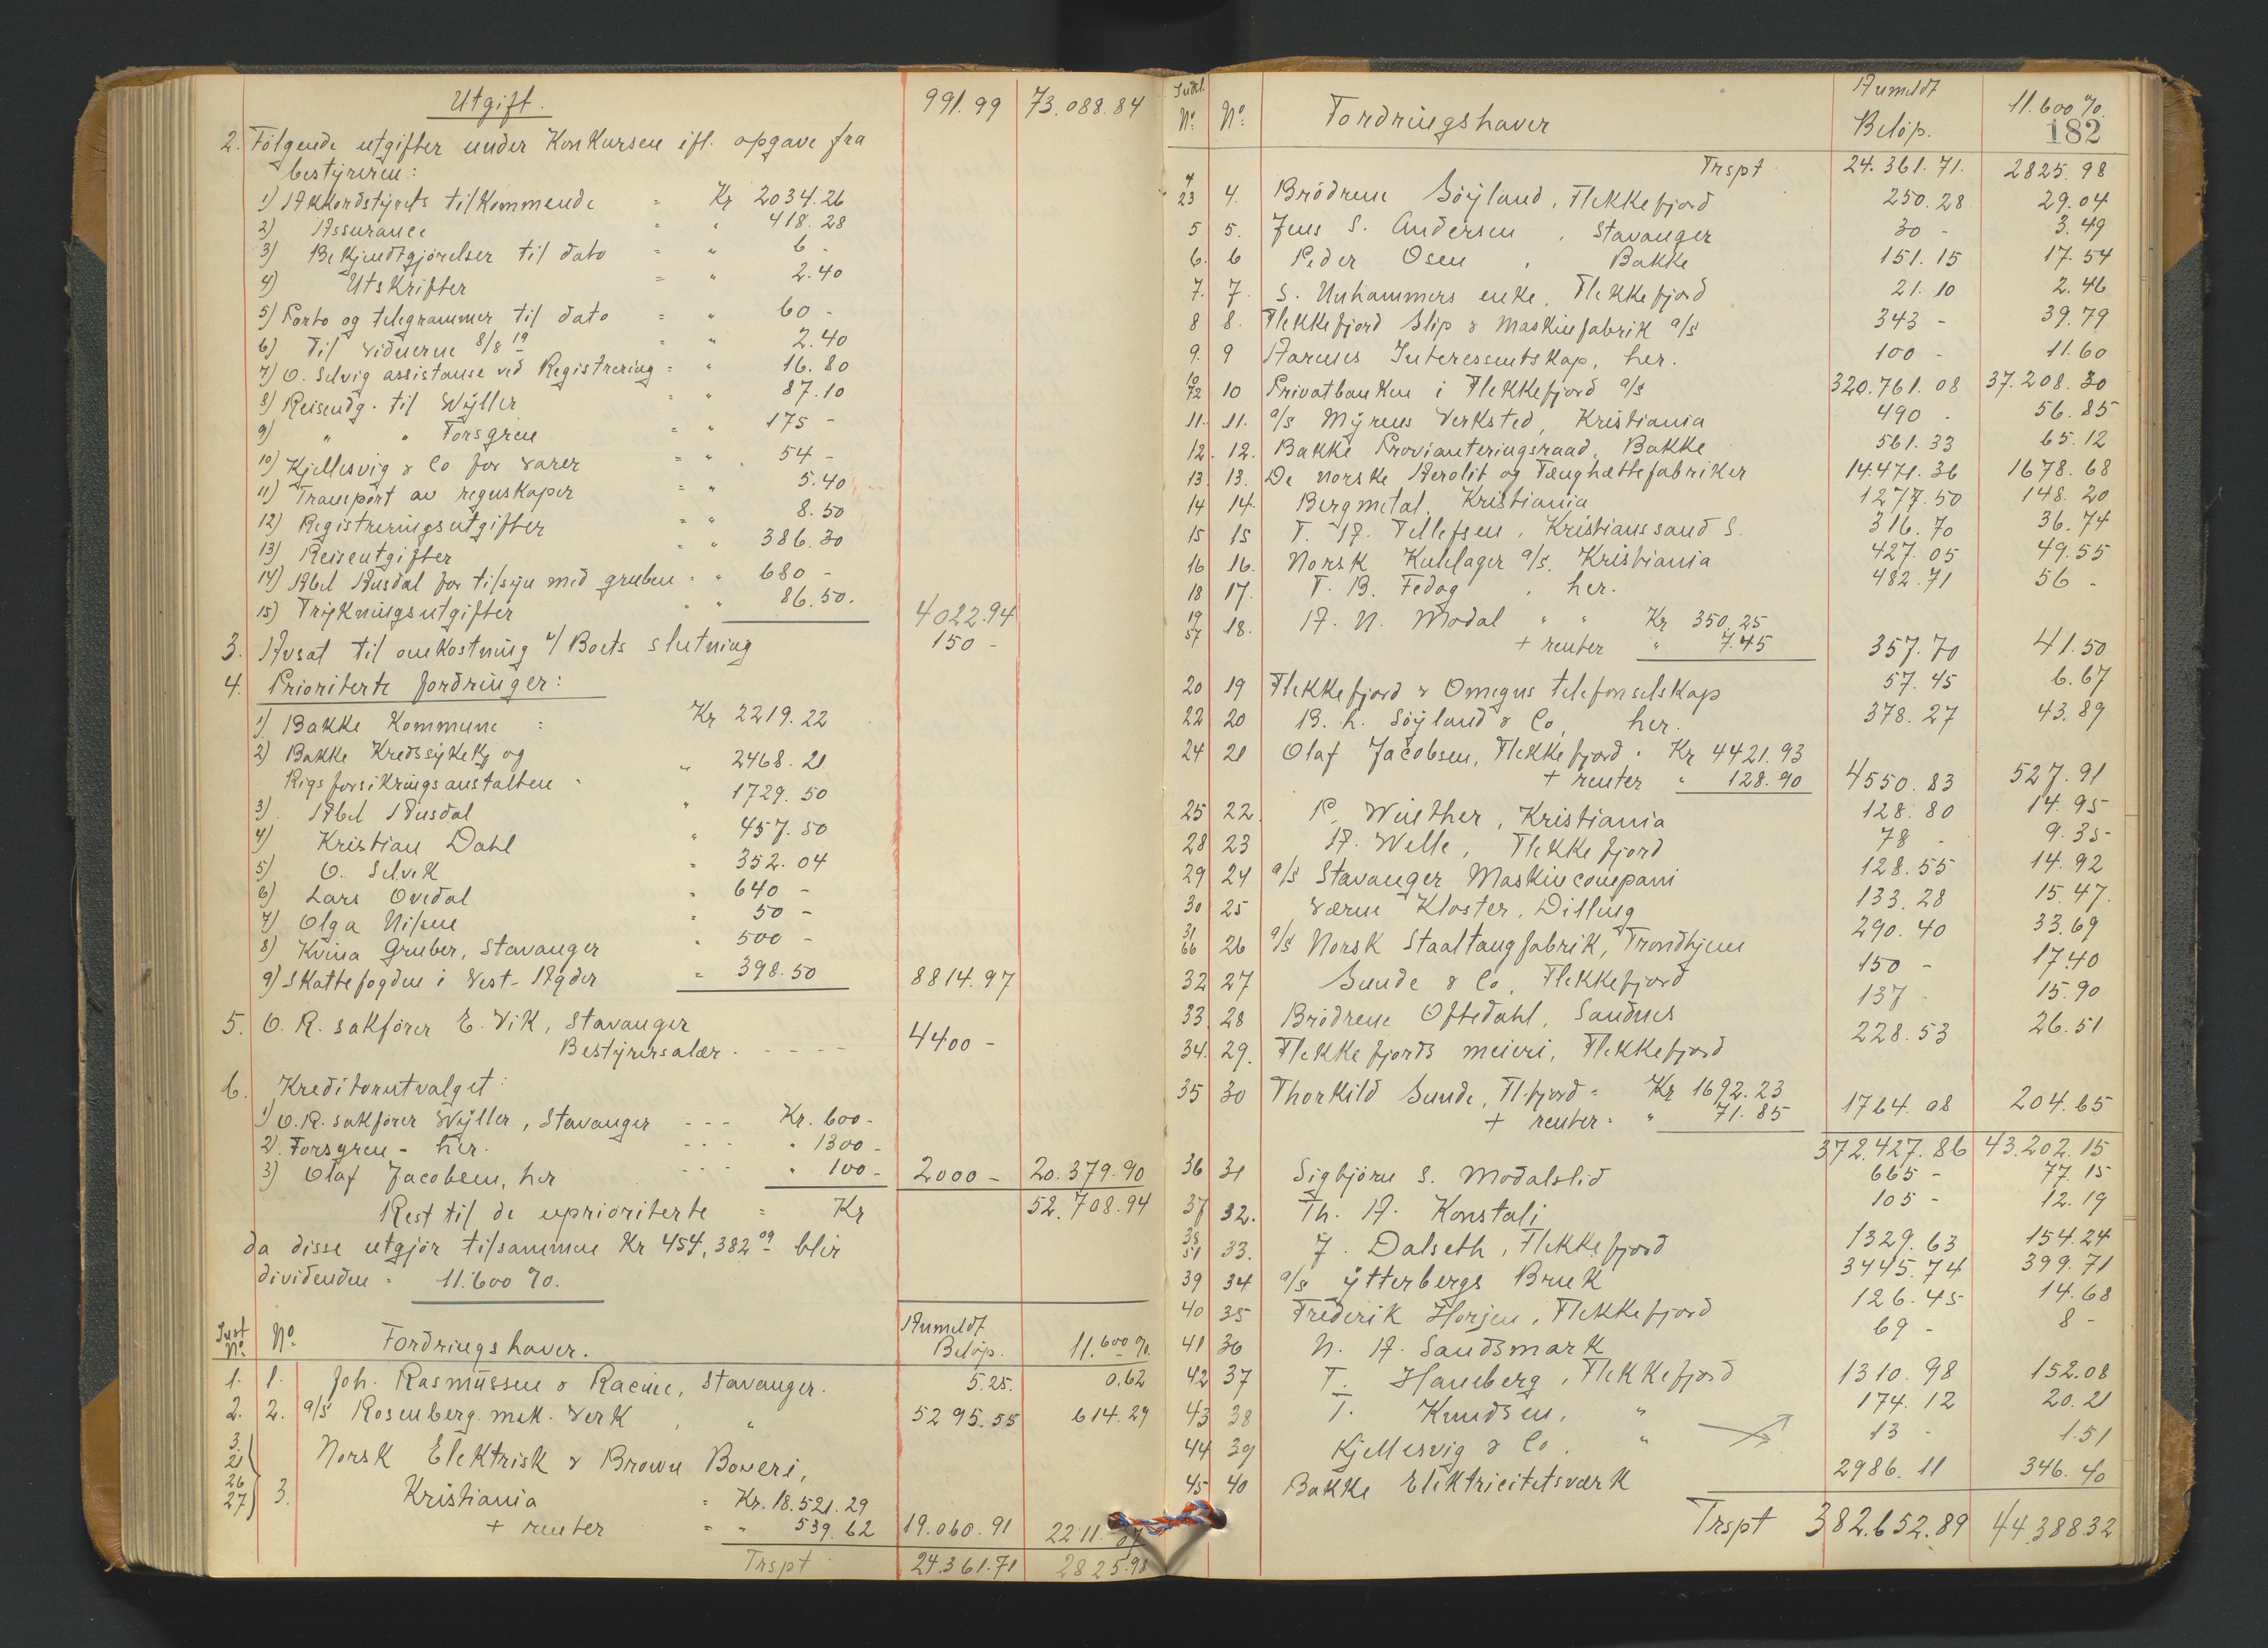 Utgift. 991.99 73.088.84
2. Følgende utgifter under Konkursen ifl. opgave fra
bestyreren:
1) Akkordstyrets tilkommende = Kr 2034.26
2) Assurance = " 418.28
3) Bekjendtgjørelser til dato = " 6 -
4) Utskrifter = " 2.40
5) Porto og telegrammer til dato = " 60 -
6) Til vidnerne 8/8 19 = " 2.40
7) O. Selvig assistanse ved Registrering = " 16.80
8) Reiseudg. til Wyller = " 87.10
9) " " Forsgren = " 175 -
10) Kjellesvig & Co for varer = " 54 -
11) Transport av regnskaper = " 5.40
12) Registreringsutgifter = " 8.50
13) Reiseutgifter = " 386.30
14) Abel Ausdal for tilsyn med gruben = " 680 -
15) Trykningsutgifter " " 86.50. 4022.94
3. Avsat til omkostning v/ Boets slutning 150 -
4. Prioriterte fordringer:
1) Bakke Kommune : Kr 2219.22
2) Bakke Kredssykek. og
Rigsforsikringsanstalten - " 2468.21
3) Abel Ausdal " 1729.50
4) Kristian Dahl " 457.50
5) O. Selvik " 352.04
6) Lars Ovedal " 640 -
7) Olga Nilsen " 50 -
8) Kvina Gruber, Stavanger " 500 -
9) Skattefogden i Vest-Agder = 398.50 8814.97
5. O. R. sakfører E. Vik, Stavanger
Bestyrersalær - - - - - 4400 -
6. Kreditorutvalget:
1) O.R. sakfører Wyller, Stavanger - - - Kr. 600 -
2) Forsgren - her. - - - " 1300 -
3) Olaf Jacobsen, her - - - " 100 - 2000 - 20.379.90
Rest til de uprioriterte = Kr 52.708.94
da disse utgjør tilsammen Kr 454,382 09 blir
dividenden = 11.600 %.
Just No. No. Fordringshaver. Anmeldt Beløp. 11.600 %.
1. 1. Joh. Rasmussen & Racine, Stavanger. 5.25. 0.62
2. 2. a/s Rosenberg mek. Verk , " 5295.55 614.29
3. 21 26 27) 3. Norsk Elektrisk & Brown Boveri,
Kristiania = Kr. 18.521.29
+ renter = " 539.62 19.060.91 2211.07
Trspt 24.361.71 2825.98
182
Judl. No. No. Fordringshaver Anmeldt Beløp. 11.600 %.
Trspt 24.361.71. 2825.98
4 23 4. Brødrene Søyland, Flekkefjord 250.28 29.04
5 5. Jens S. Andersen , Stavanger 30 - 3.49
6. 6 Peder Osen , Bakke 151.15 17.54
7. 7. S. Unhammers enke, Flekkefjord 21.10 2.46
8 8. Flekkefjord Slip & Maskinfabrik a/s 343 - 39.79
9. 9 Aarenes Interessentskap, her. 100 - 11.60
10 72 10 Privatbanken i Flekkefjord a/s 320.761.08 37.208.30
11. 11. a/s Myrens Verksted, Kristiania 490 - 56.85
12. 12. Bakke Provianteringsraad, Bakke 561.33 65.12
13. 13. De norske Aerolit og Tænghættefabriker 14.471.36 1678.68
14 14. Bergmetal, Kristiania 1277.50 148.20
15 15 T. A. Tellefsen, Kristianssand S. 316.70 36.74
16 16. Norsk Kulelager a/s, Kristiania 427.05 49.55
18 17. T. B. Fedog , her. 482.71 56 -
19 57 18. A. N. Modal " " Kr 350.25
+ renter " 7.45 357.70 41.50
20 19 Flekkefjord & Omegns telefonselskap 57.45 6.67
22 20 B. h. Søyland & Co, her. 378.27 43.89
24 21 Olaf Jacobsen, Flekkefjord = Kr 4421.93
+ renter " 128.90 4550.83 527.91
25 22. P. Winther, Kristiania 128.80 14.95
28 23 A. Welle, Flekkefjord 78 - 9.35
29 24 a/s Stavanger Maskincompani 128.55 14.92
30 25 Værne Kloster, Dilling 133.28 15.47.
31 66 26 a/s Norsk Staaltaugfabrik, Trondhjem 290.40 33.69
32 27 Sunde & Co, Flekkefjord 150 - 17.40
33 28 Brødrene Oftedahl, Sandnes 137 - 15.90
34. 29. Flekkefjords meieri, Flekkefjord 228.53 26.51
35 30 Thorkild Sunde, Fl.fjord = Kr 1692.23
+ renter = " 71.85 1764.08 204.65
372.427.86 43.202.15
36 31 Sigbjørn S. Modalslid 665 - 77.15
37 32. Th. A. Konstali 105 - 12.19
38 51 33. J. Dalseth, Flekkefjord 1329.63 154.24
39 34 a/s Ytterbergs Bruk 3445.74 399.71
40 35 Frederik Horjen, Flekkefjord 126.45 14.68
41 36 N. A. Sandsmark 69 - 8 -
42 37 T. Haneberg, Flekkefjord 1310.98 152.08
43 38 T. Knudsen, " 174.12 20.21
44 39 Kjellesvig & Co, " 13 - 1.51
45 40 Bakke Elektricitetsværk 2986.11 346.40
Trspt 382.652.89 44.388.32